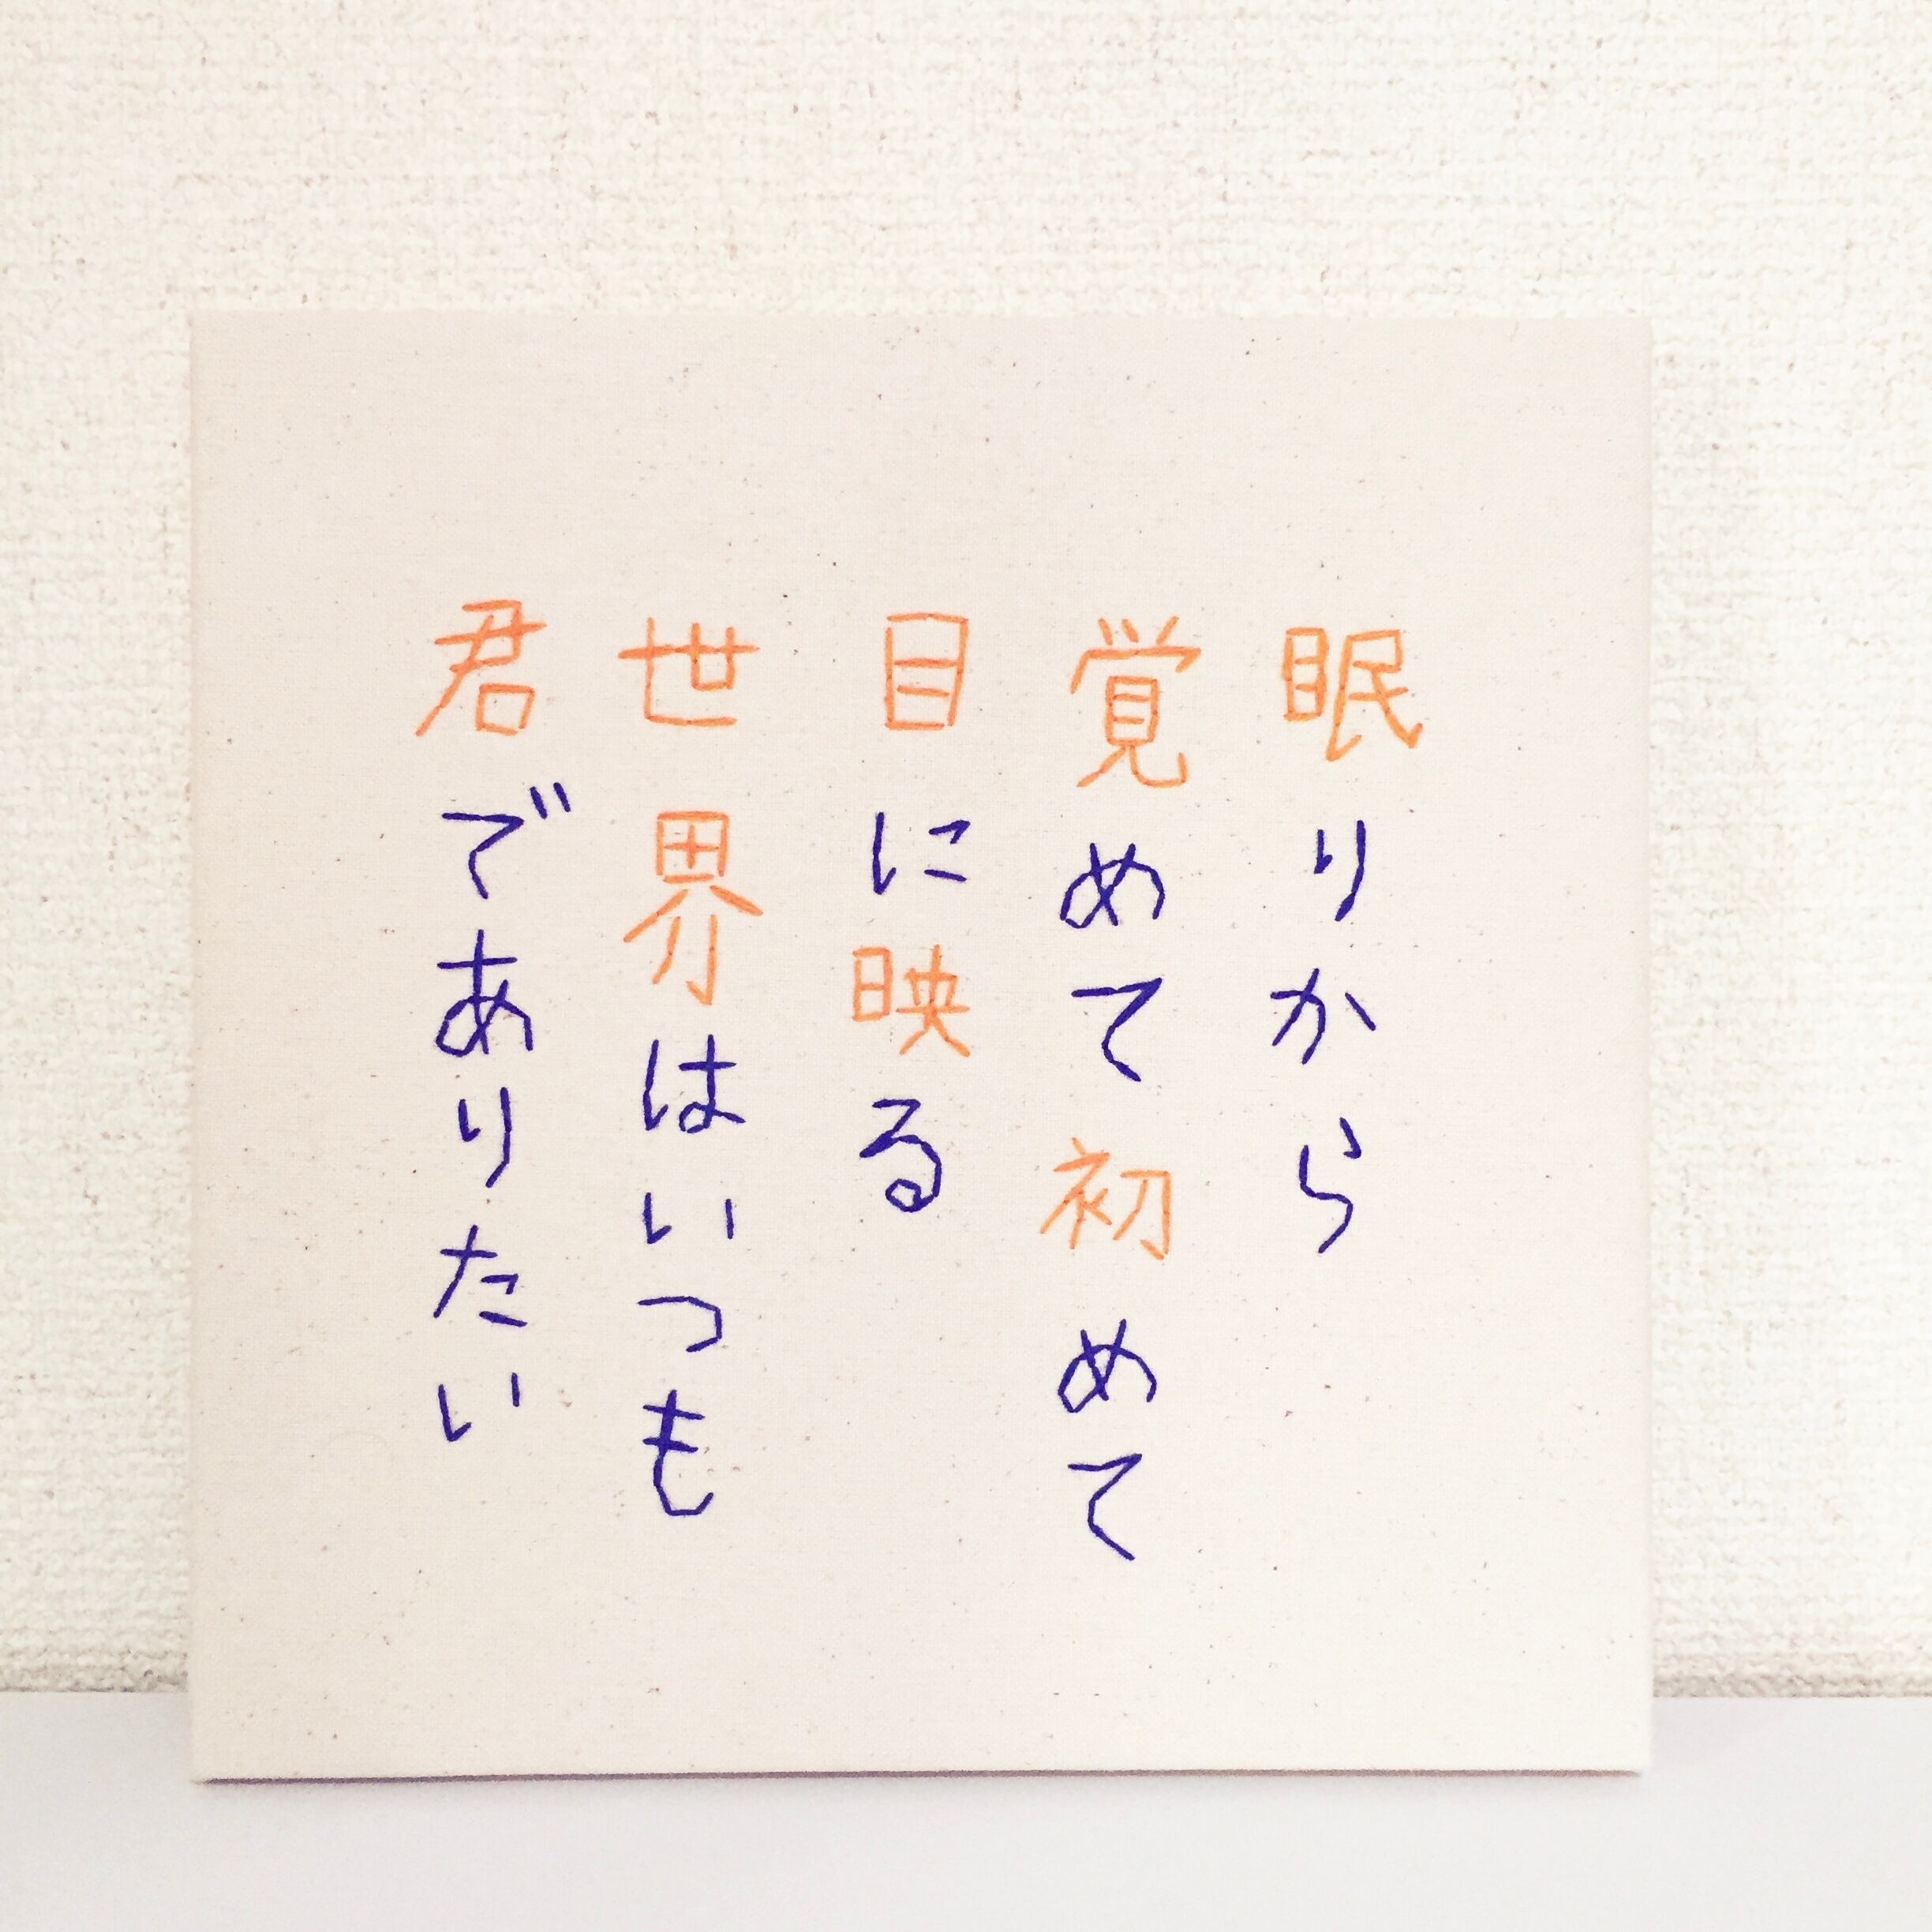 眠りから
覚めて初めて
目に映る
世界はいつも
君でありたい